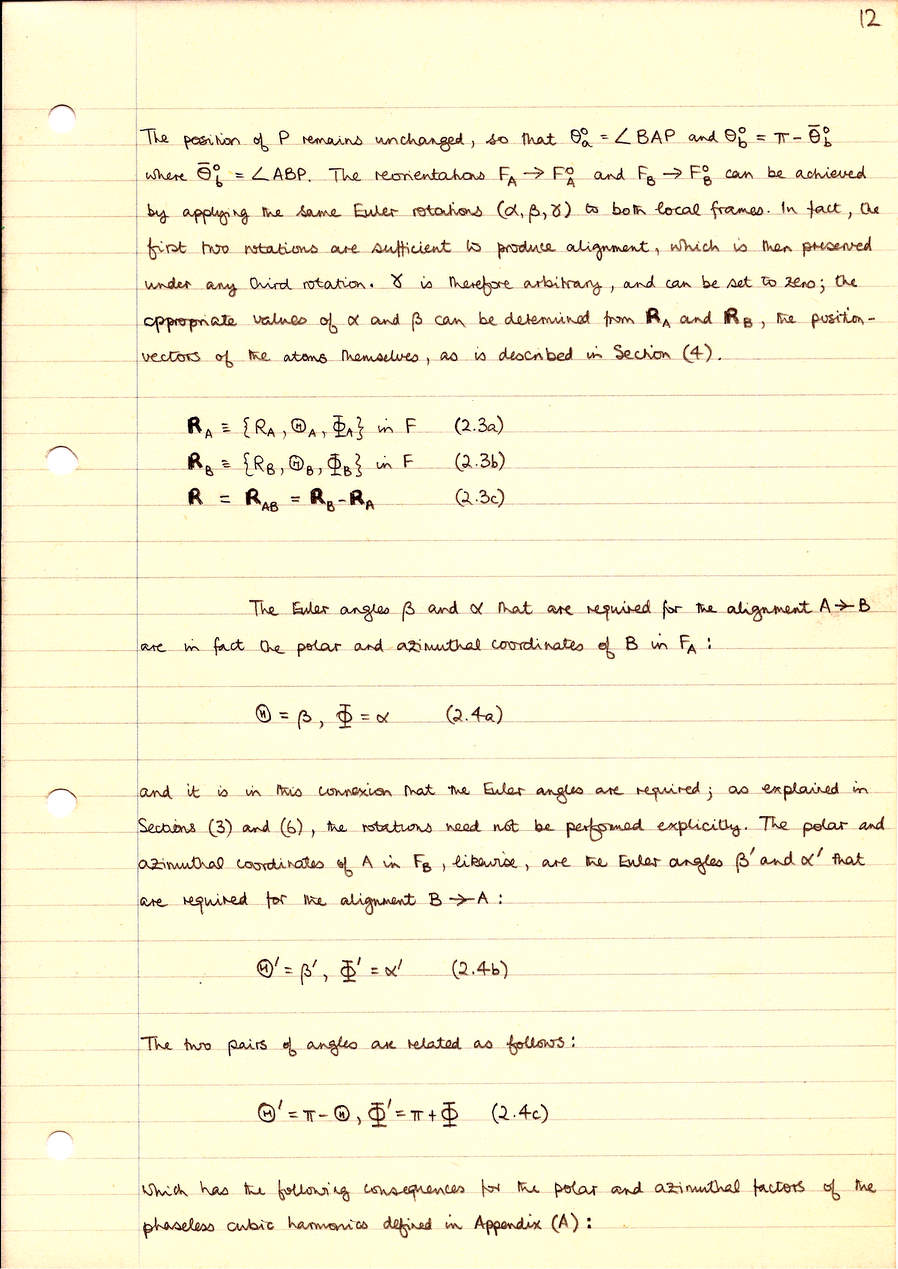 12
The position of P remains unchanged, so that θₐ° = ∠BAP and θ_b° = π - θ̄_b°
where θ̄_b° = ∠ABP. The reorientations F_A → F_A° and F_B → F_B° can be achieved
by applying the same Euler rotations (α, β, γ) to both local frames. In fact, the
first two rotations are sufficient to produce alignment, which is then preserved
under any third rotation. γ is therefore arbitrary, and can be set to zero; the
appropriate values of α and β can be determined from R_A and R_B, the position-
vectors of the atoms themselves, as is described in Section (4).
R_A ≡ {R_A, Θ_A, Φ_A} in F (2.3a)
R_B ≡ {R_B, Θ_B, Φ_B} in F (2.3b)
R = R_AB = R_B - R_A (2.3c)
The Euler angles β and α that are required for the alignment A → B
are in fact the polar and azimuthal coordinates of B in F_A :
Θ = β, Φ = α (2.4a)
and it is in this connexion that the Euler angles are required; as explained in
Sections (3) and (6), the rotations need not be performed explicitly. The polar and
azimuthal coordinates of A in F_B, likewise, are the Euler angles β' and α' that
are required for the alignment B → A :
Θ' = β', Φ' = α' (2.4b)
The two pairs of angles are related as follows :
Θ' = π - Θ, Φ' = π + Φ (2.4c)
which has the following consequences for the polar and azimuthal factors of the
phaseless cubic harmonics defined in Appendix (A) :